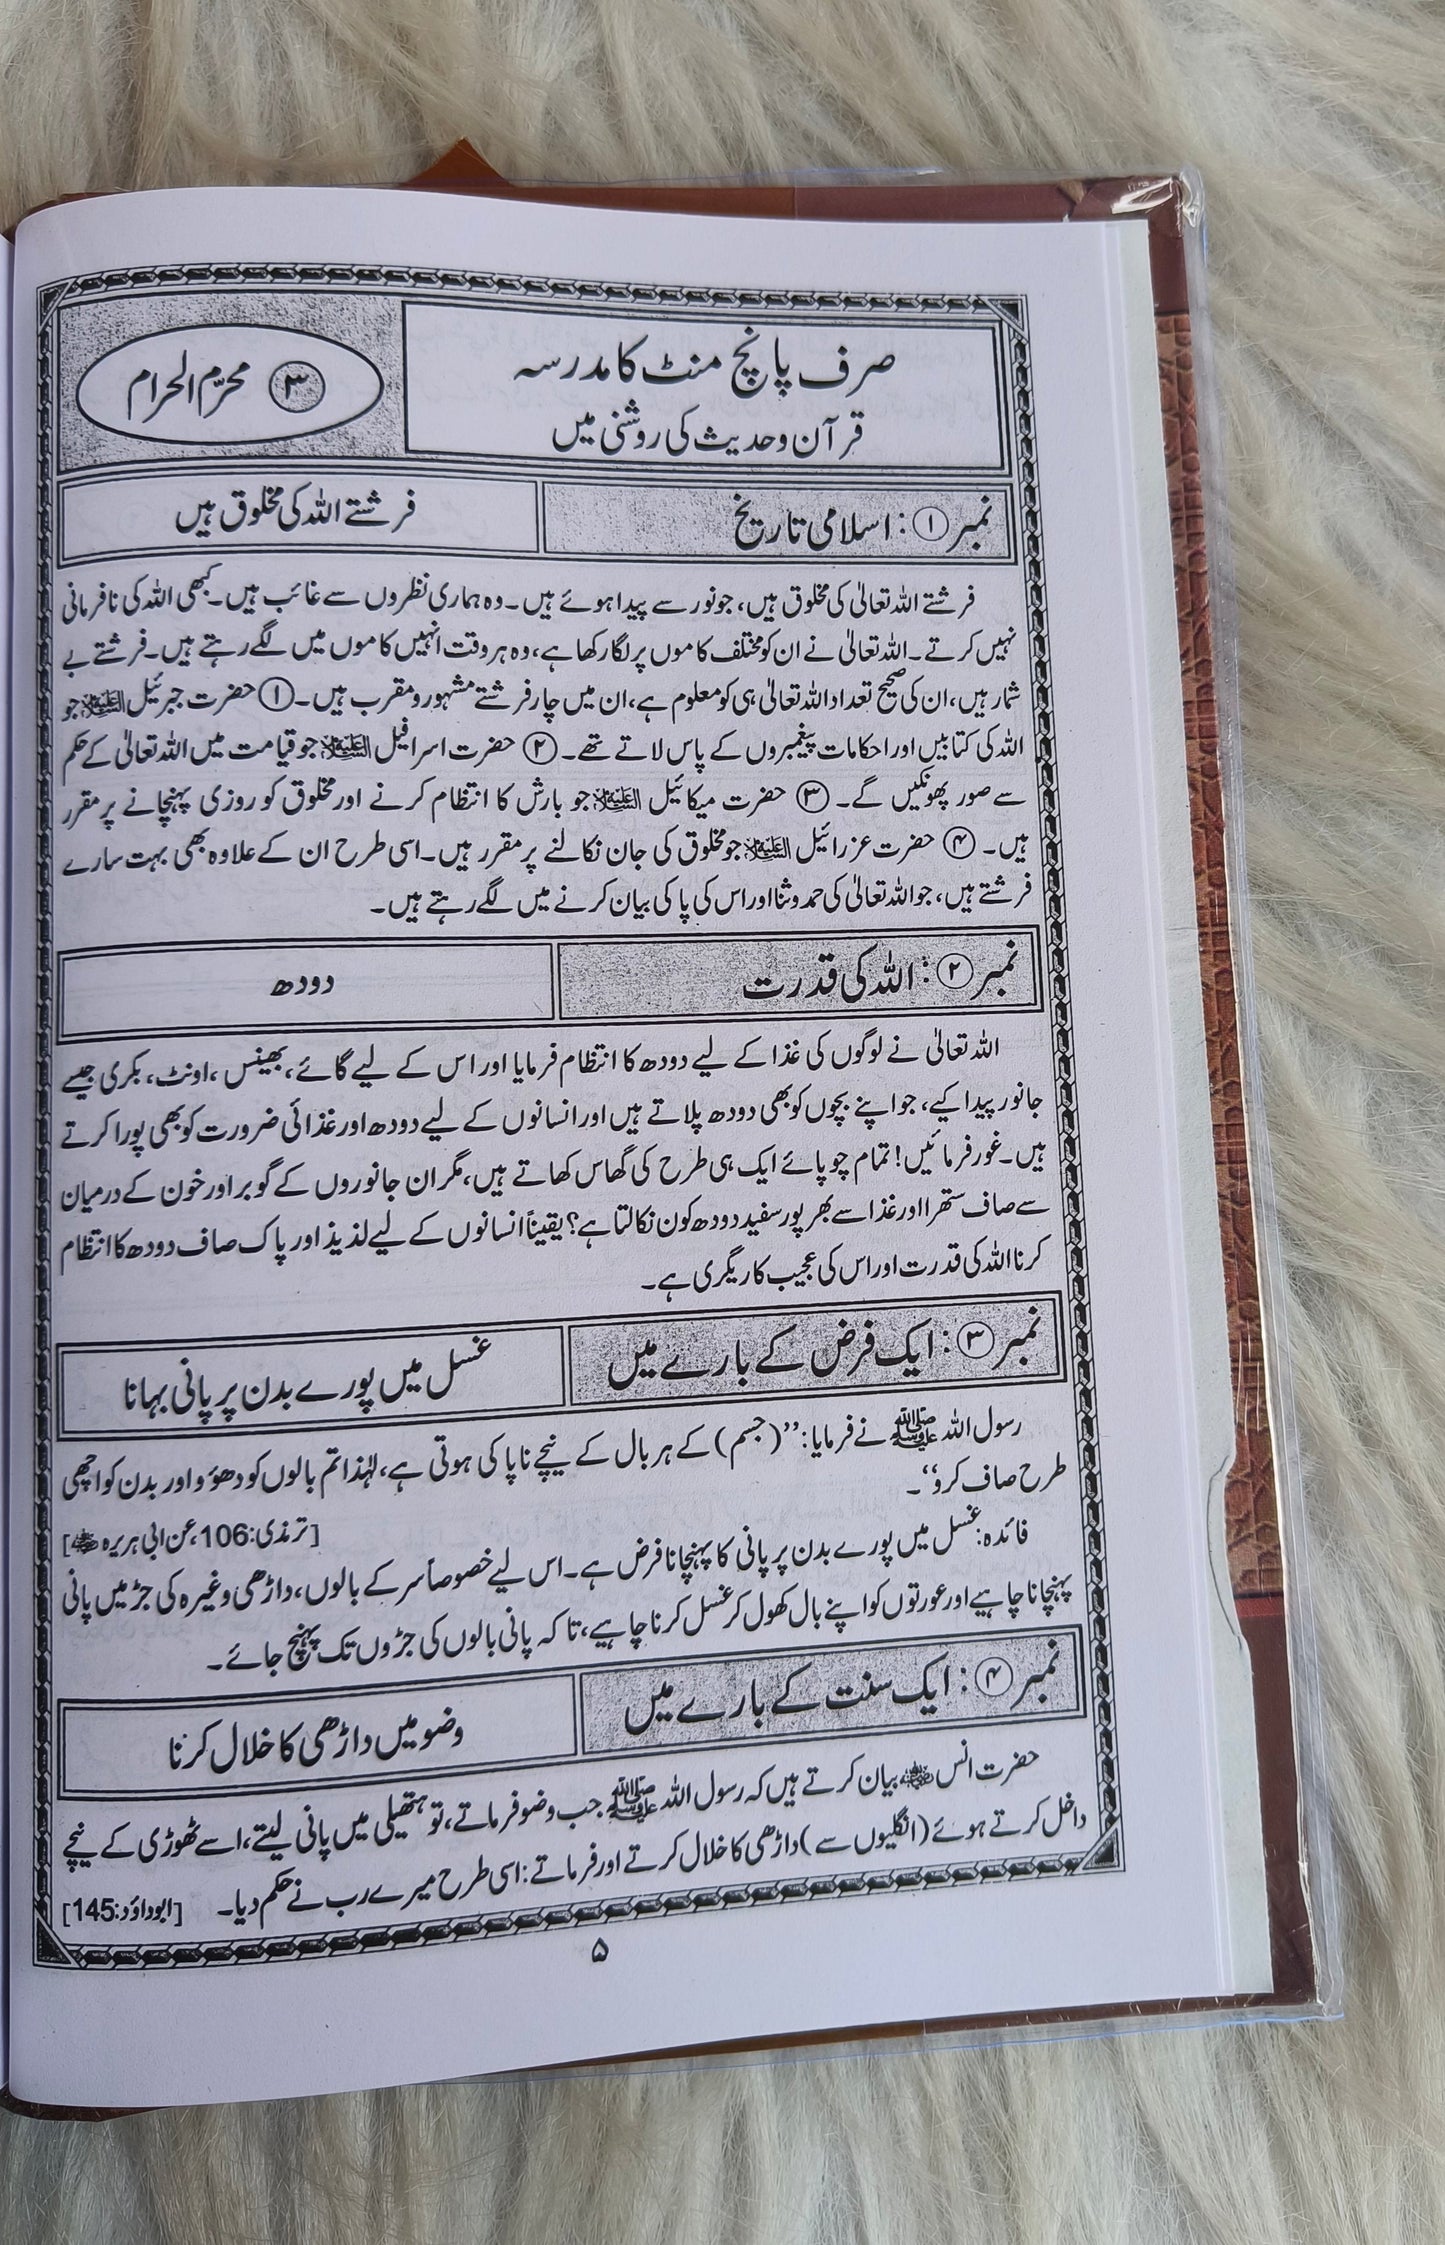 صرف پانچ منٹ کا مدرسہ
قرآن و حدیث کی روشنی میں
۳ محرّم الحرام
نمبر ۱ : اسلامی تاریخ
فرشتے اللہ کی مخلوق ہیں
فرشتے اللہ تعالیٰ کی مخلوق ہیں، جو نور سے پیدا ہوئے ہیں۔ وہ ہماری نظروں سے غائب ہیں۔ کبھی اللہ کی نافرمانی
نہیں کرتے۔ اللہ تعالیٰ نے ان کو مختلف کاموں پر لگا رکھا ہے، وہ ہر وقت انہیں کاموں میں لگے رہتے ہیں۔ فرشتے بے
شمار ہیں، ان کی صحیح تعداد اللہ تعالیٰ ہی کو معلوم ہے، ان میں چار فرشتے مشہور و مقرب ہیں۔ ۱ حضرت جبرئیل علیہ السلام جو
اللہ کی کتابیں اور احکامات پیغمبروں کے پاس لاتے تھے۔ ۲ حضرت اسرافیل علیہ السلام جو قیامت میں اللہ تعالیٰ کے حکم
سے صور پھونکیں گے۔ ۳ حضرت میکائیل علیہ السلام جو بارش کا انتظام کرنے اور مخلوق کو روزی پہنچانے پر مقرر
ہیں۔ ۴ حضرت عزرائیل علیہ السلام جو مخلوق کی جان نکالنے پر مقرر ہیں۔ اسی طرح ان کے علاوہ بھی بہت سارے
فرشتے ہیں، جو اللہ تعالیٰ کی حمد و ثنا اور اس کی پاکی بیان کرنے میں لگے رہتے ہیں۔
نمبر ۲ : اللہ کی قدرت
دودھ
اللہ تعالیٰ نے لوگوں کی غذا کے لیے دودھ کا انتظام فرمایا اور اس کے لیے گائے، بھینس، اونٹ، بکری جیسے
جانور پیدا کیے، جو اپنے بچوں کو بھی دودھ پلاتے ہیں اور انسانوں کے لیے دودھ اور غذائی ضرورت کو بھی پورا کرتے
ہیں۔ غور فرمائیں! تمام چوپائے ایک ہی طرح کی گھاس کھاتے ہیں، مگر ان جانوروں کے گوبر اور خون کے درمیان
سے صاف ستھرا اور غذا سے بھرپور سفید دودھ کون نکالتا ہے؟ یقیناً انسانوں کے لیے لذیذ اور پاک صاف دودھ کا انتظام
کرنا اللہ کی قدرت اور اس کی عجیب کاریگری ہے۔
نمبر ۳ : ایک فرض کے بارے میں
غسل میں پورے بدن پر پانی بہانا
رسول اللہ ﷺ نے فرمایا: ’’(جسم) کے ہر بال کے نیچے ناپاکی ہوتی ہے، لہٰذا تم بالوں کو دھوؤ اور بدن کو اچھی
طرح صاف کرو‘‘۔
[ترمذی: 106، عن ابی ہریرہ رضی اللہ عنہ]
فائدہ: غسل میں پورے بدن پر پانی کا پہنچانا فرض ہے۔ اس لیے خصوصاً سر کے بالوں، داڑھی وغیرہ کی جڑ میں پانی
پہنچانا چاہیے اور عورتوں کو اپنے بال کھول کر غسل کرنا چاہیے، تاکہ پانی بالوں کی جڑوں تک پہنچ جائے۔
نمبر ۴ : ایک سنت کے بارے میں
وضو میں داڑھی کا خلال کرنا
حضرت انس رضی اللہ عنہ بیان کرتے ہیں کہ رسول اللہ ﷺ جب وضو فرماتے، تو ہتھیلی میں پانی لیتے، اسے ٹھوڑی کے نیچے
داخل کرتے ہوئے (انگلیوں سے) داڑھی کا خلال کرتے اور فرماتے: اسی طرح میرے رب نے حکم دیا۔
[ابو داؤد: 145]
۵